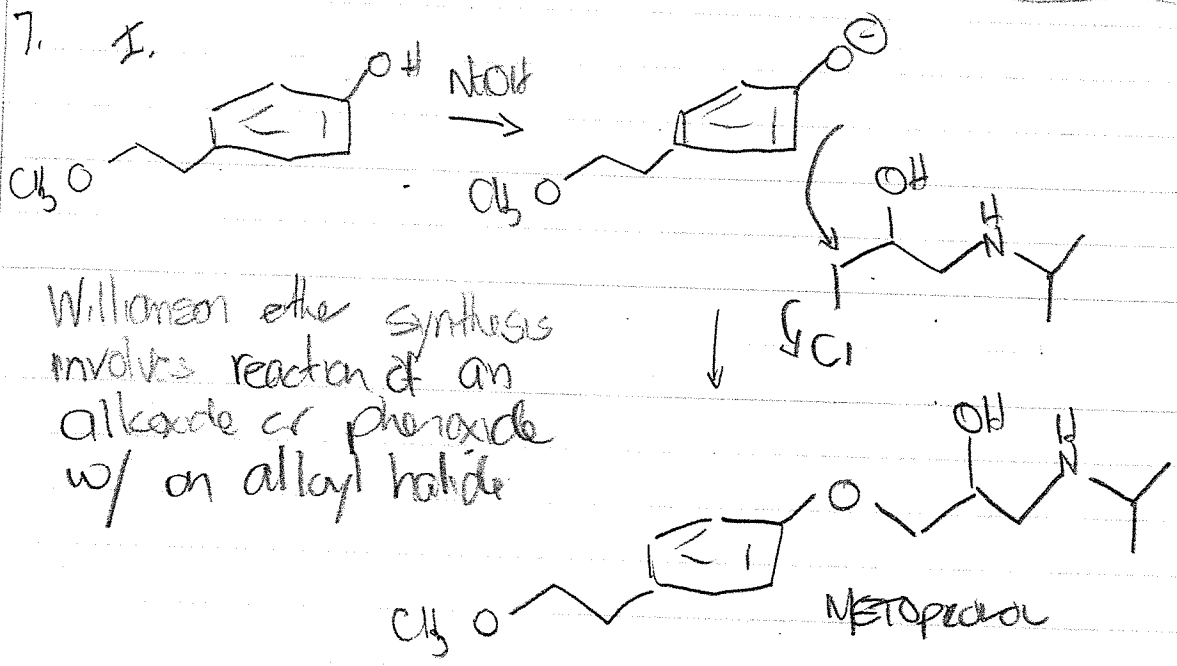 7. I.
OH
NaOH
O⊖
CH3 O
CH3 O
OH
H
N
Cl
Williamson ether synthesis
involves reaction of an
alkoxide or phenoxide
w/ an alkyl halide
OH
H
N
O
CH3 O
METOPROLOL